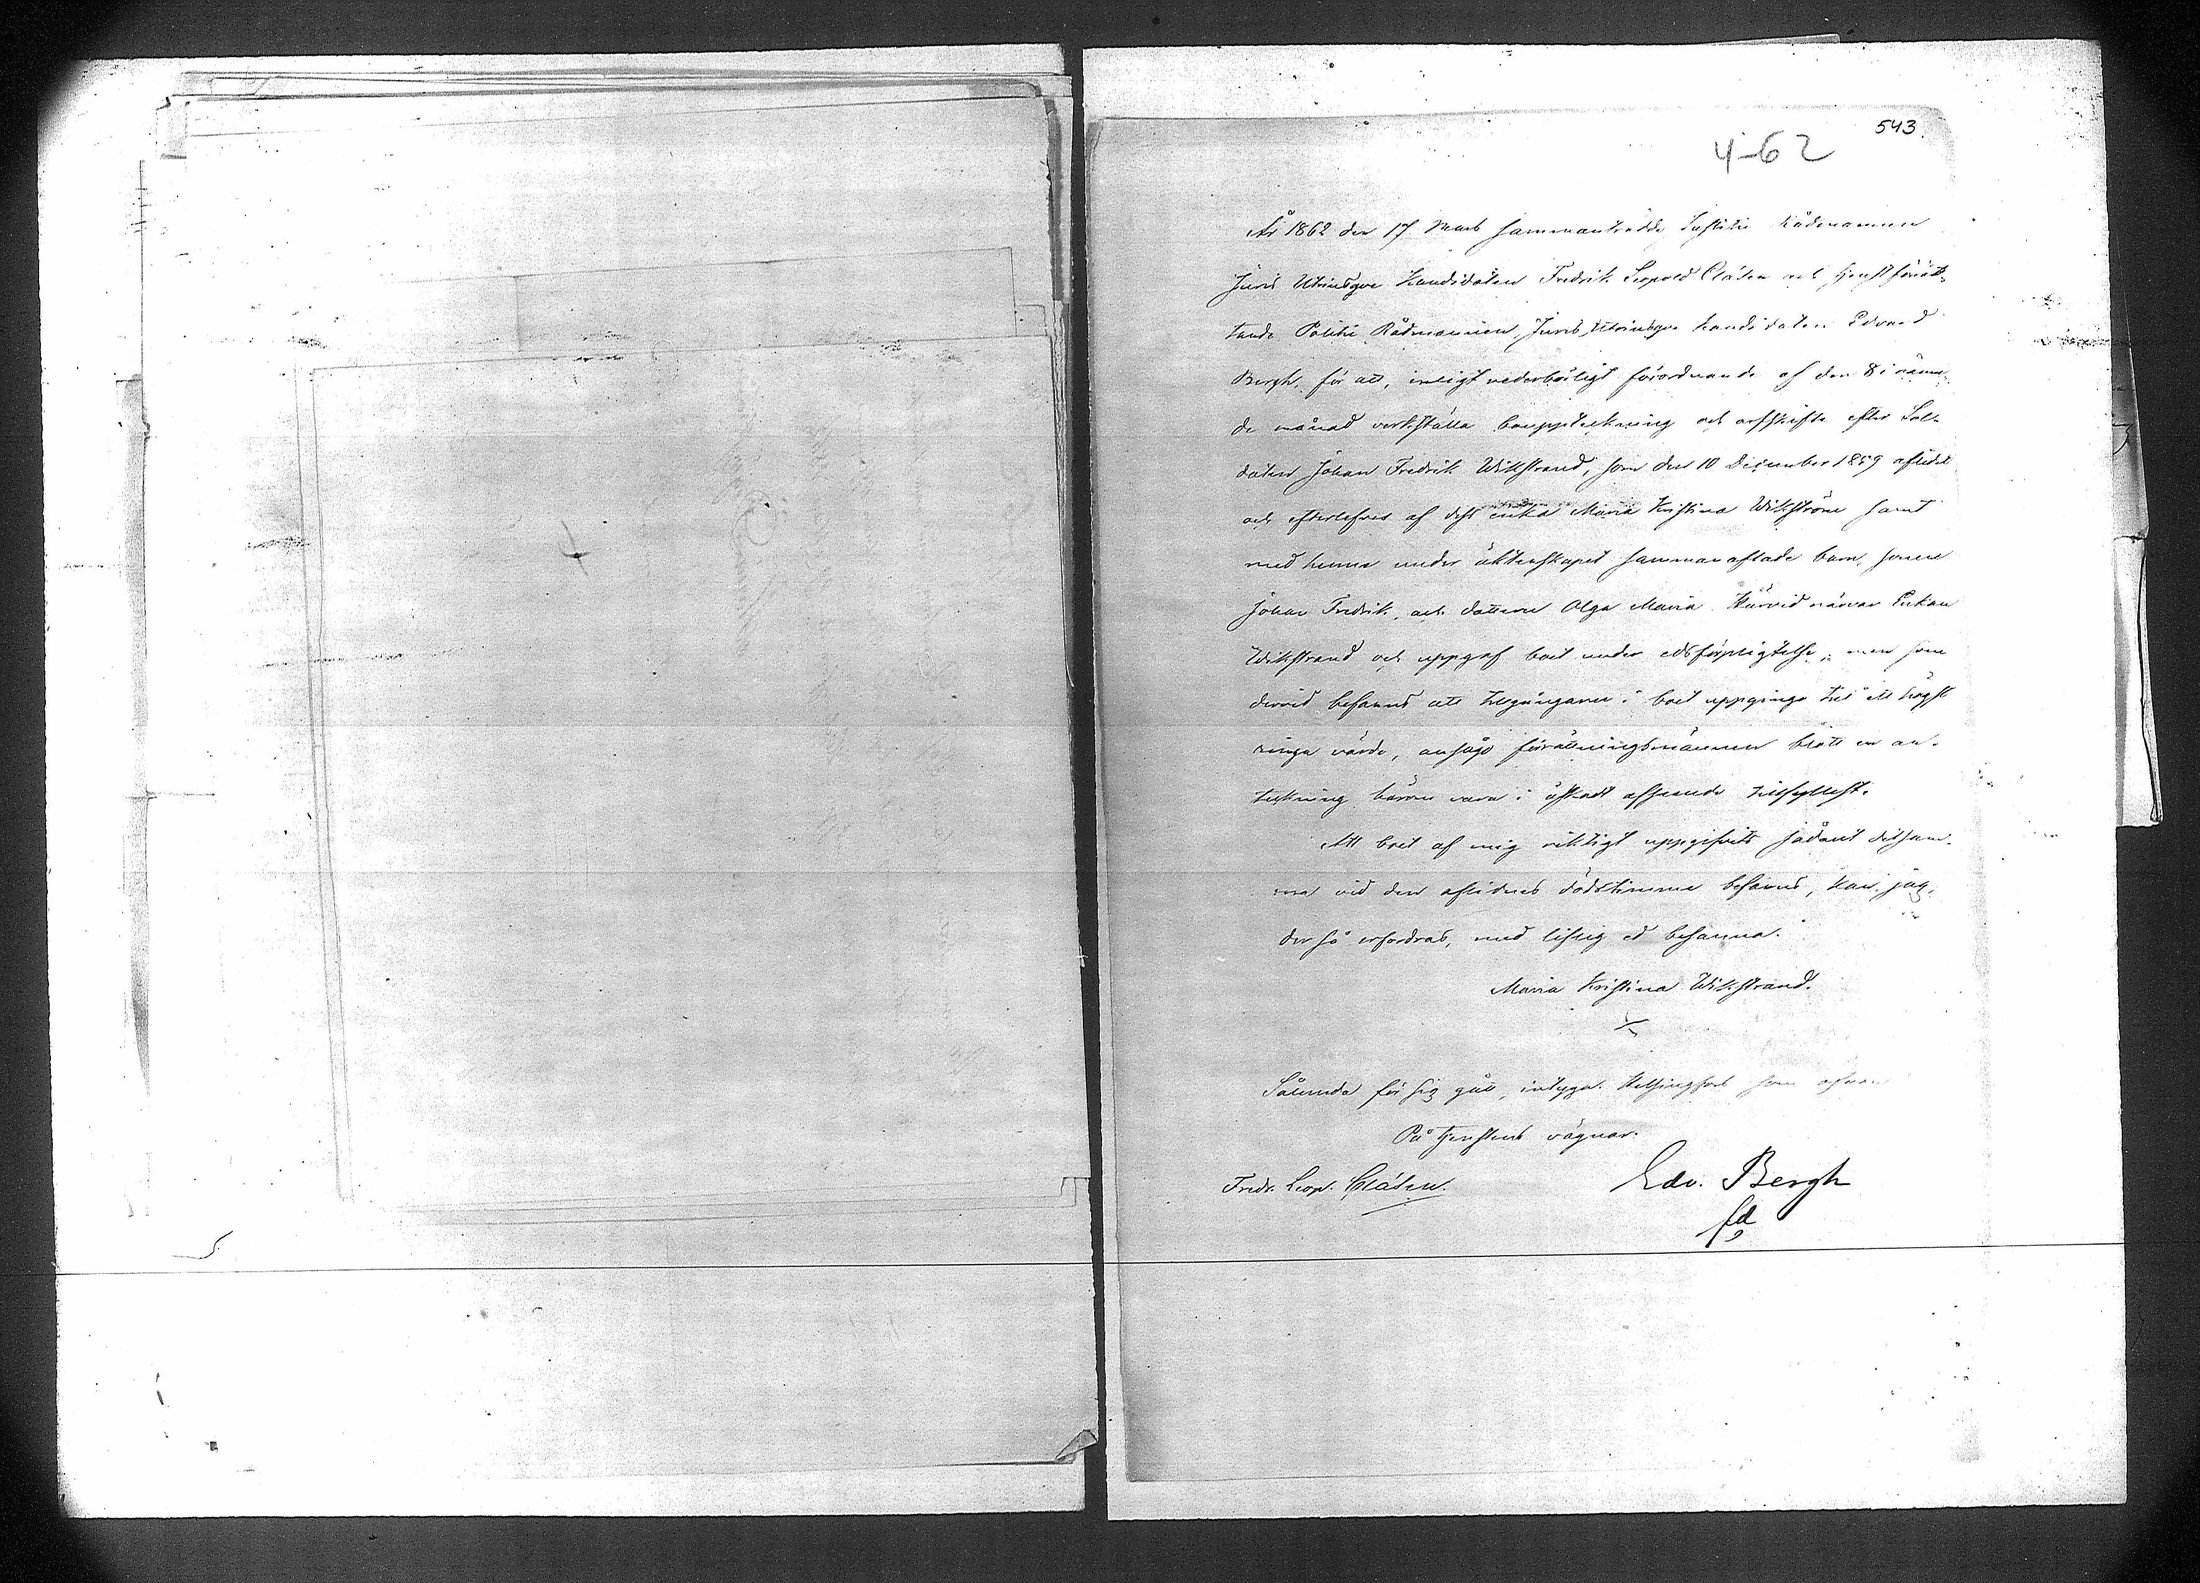 543.
4-62
År 1862 den 17 Mars sammanträdde Justitie Rådmannen
Juris Utriusque Kandidaten Fredrik Leopold Clásen och tjenstförrät-
tande Politie Rådmannen, Juris Utriusque Kandidaten Edvard
Bergh, för att, enligt vederbörligt förordnande af den 8 i nämn-
de månad verkställa bouppteckning och arfskifte efter Sol-
daten Johan Fredrik Wikstrand, som den 10 December 1859 aflidit
och efterlefves af dess enka Maria Kristina Wikström samt
med henne under äktenskapet sammanaflade barn, sonen
Johan Fredrik och dottren Olga Maria. Härvid närvar Enkan
Wikstrand och uppgaf boet under edsförpligtelse; men som
dervid befanns att tillgångarne i boet uppgingo till ett högst
ringa värde, ansågo förrättningsmännen blott en an-
teckning härom vara i åskadt afseende tillfyllest.
Att boet af mig riktigt uppgifvits sådant detsam-
ma vid den aflidnes dödstimma befanns, kan jag,
der så erfordras, med liflig ed besanna.
Maria Kristina Wikstrand.
Sålunda för sig gått, intyga. Helsingfors som ofvan
På tjenstens vägnar.
Fredr. Leop. Clásen.
Edv. Bergh
fd